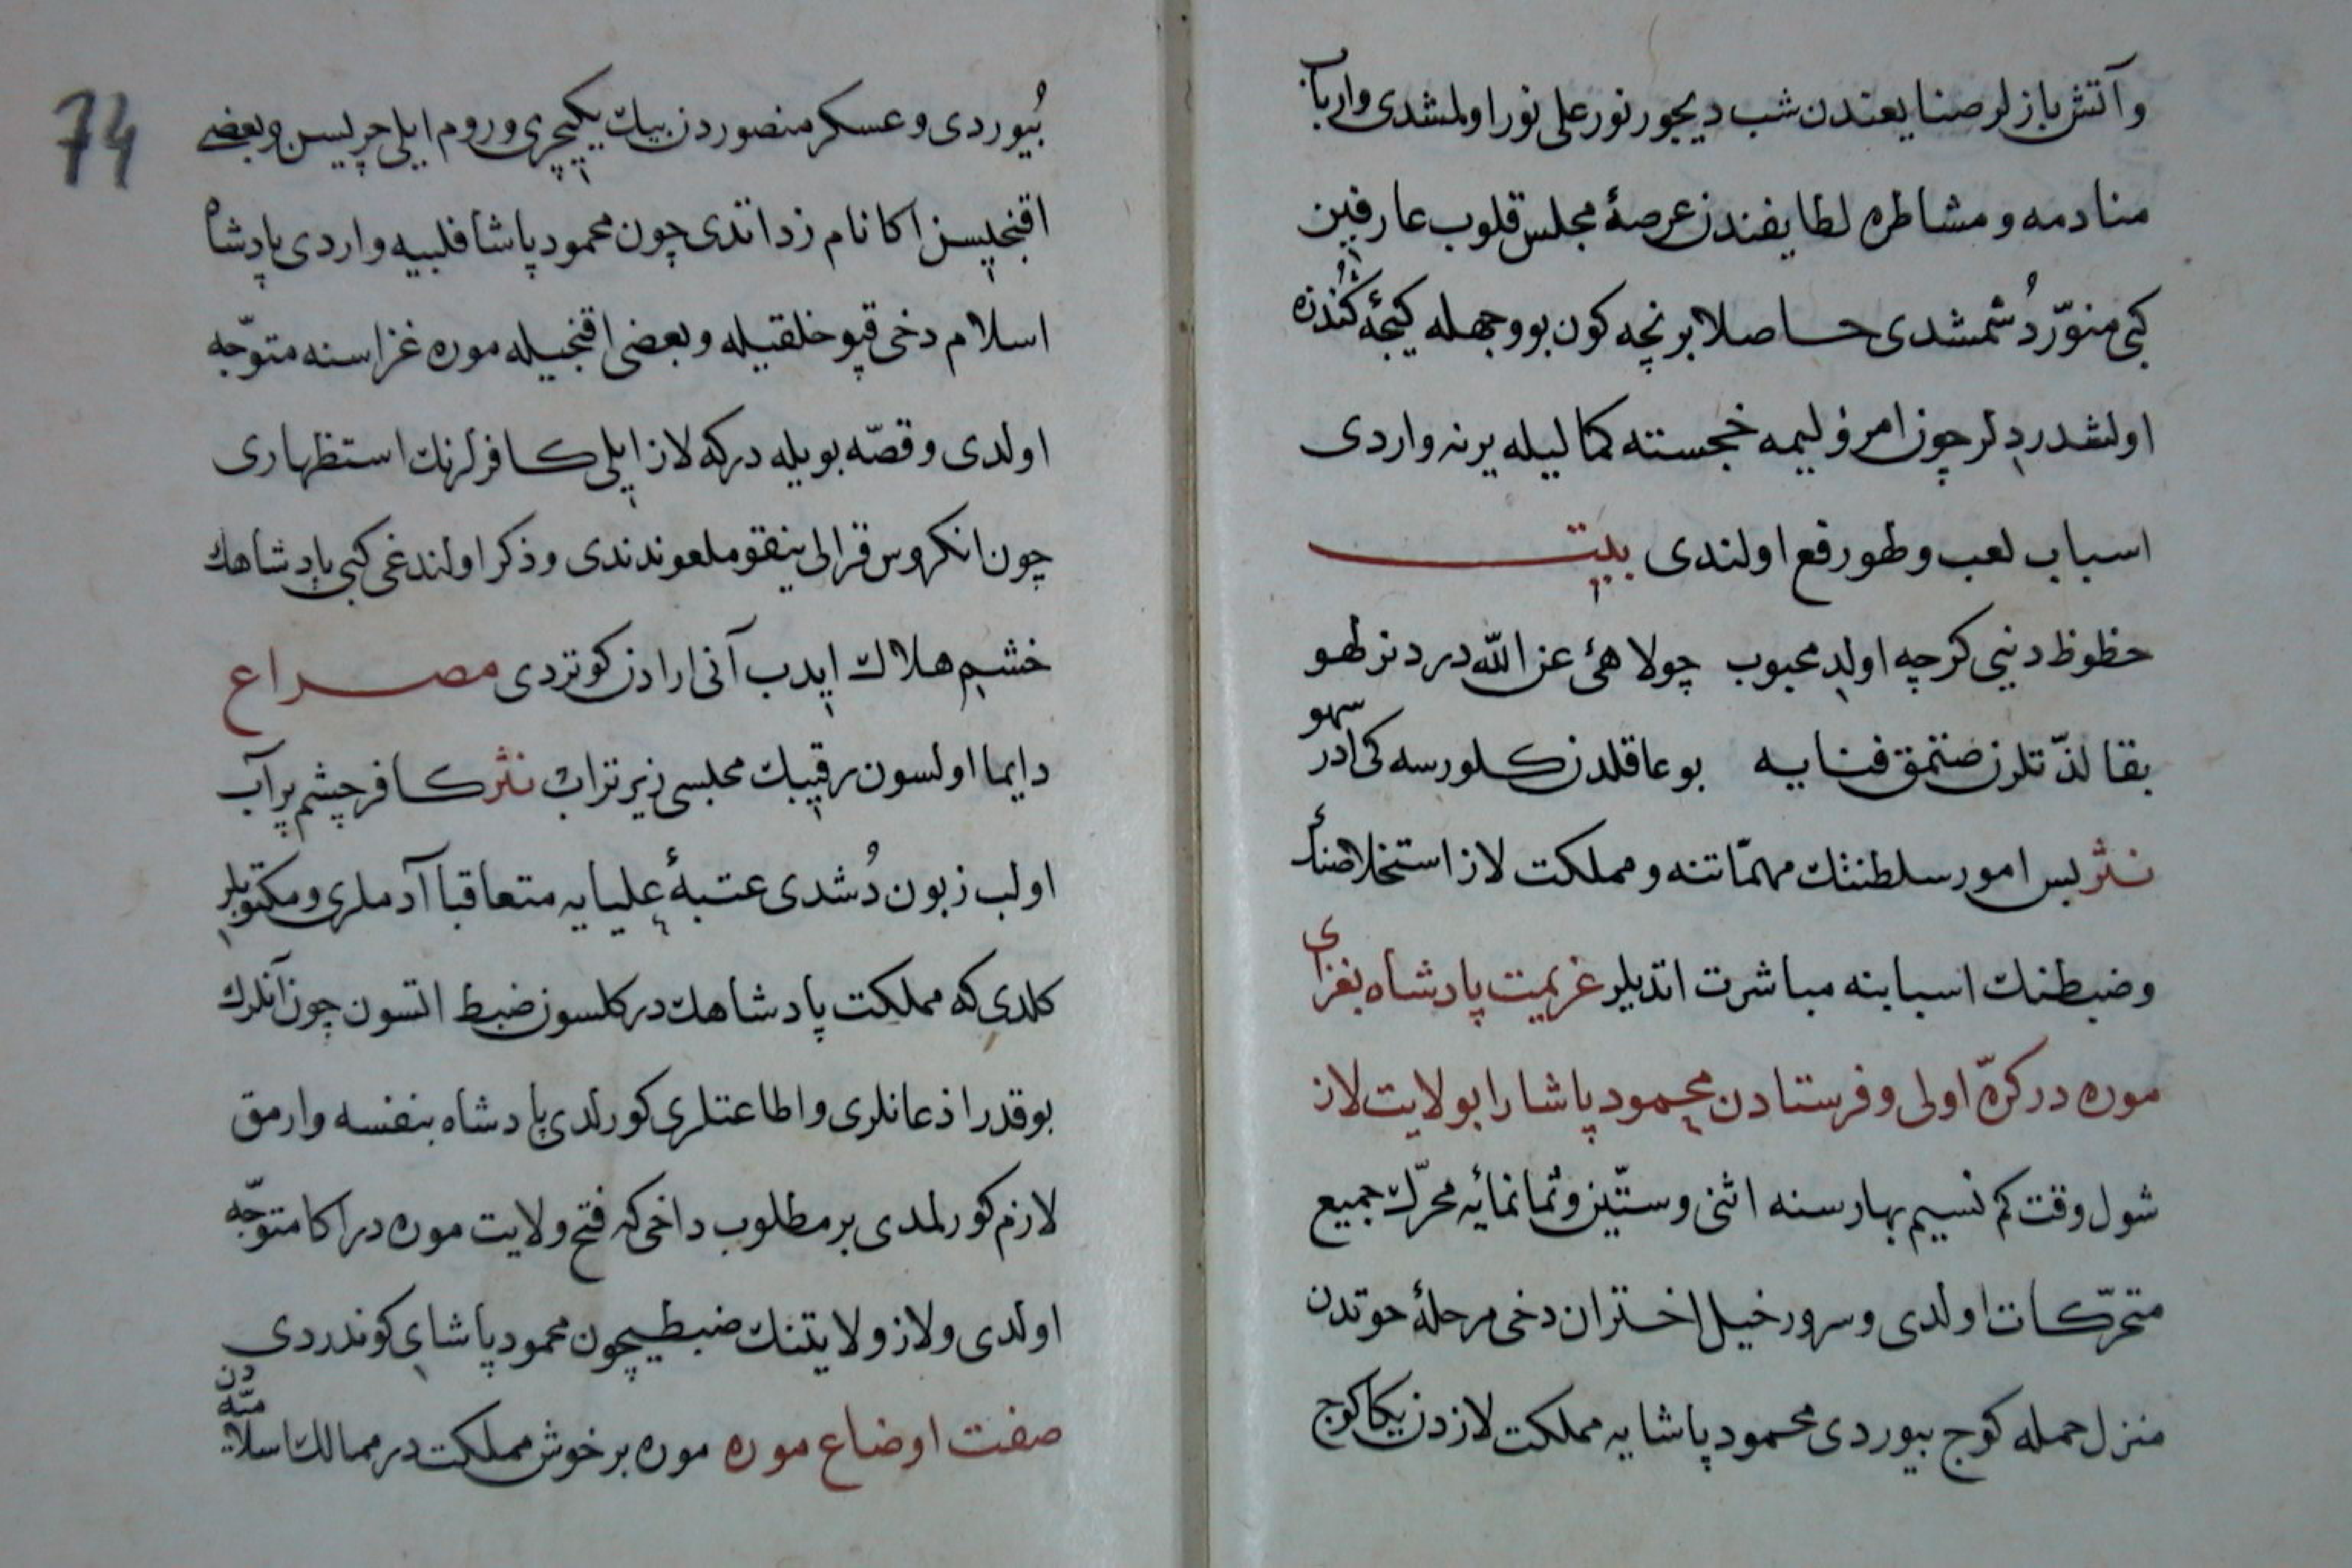 وآتش بازلر صنایعندن شب دیجور نور علی نور اولمشدی وارباب
منادمه و مشاطره لطایفندن عرصۀ مجلس قلوب عارفین
کبی منوّر دُشمشدی حاصلا بر نچه کون بو وجهله کیجۀ کُندزه
اولشدردلر چون امر ولیمه خجسته کمالیله یرنه واردی
اسباب لعب وطهو رفع اولندی بیت
حظوظ دنیی کرچه اولدِ محبوب چولاهئ عن الله در دنز لهو
بقا لذّتلرن صنتمق فنایه بو عاقلدن کلورسه کی ادر سهو
نثر بس امور سلطنتنك مهمّاتنه و مملکت لاز استخلاصنأ
وضبطنك اسبابنه مباشرت اتدیلر عزیمت پادشاه بغزای
موره در کرّه اولی و فرستادن محمود پاشا را بو لایت لاز
شول وقت کم نسیم بهار سنه اثنی وستّین وثمانمائیه محرّك جمیع
متحرّکات اولدی وسرور خیل اختران دخی مرحلۀ حوتدن
منزل حمله کوچ بیوردی محمود پاشایه مملکت لازدن یکا کوچ
بُیوردی وعسکر منصوردن بیك یکیچری وروم ایلی چریسن وبعضی
اقنجیسن اکا نامزد اتدی چون محمود پاشا فلبیه واردی پادشاه
اسلام دخی قپو خلقیله وبعضی اقنجیله موره غزاسنه متوجّه
اولدی وقصّه بویله درکه لاز ایلی کافرلرنك استظهاری
چون انکروس قرالی ینقو ملعوندندی وذکر اولندغی کبی پادشاهك
خشم هلاك ایدب آنی ارادن کوتردی مصراع
دایما اولسون رقیبك مجلسی زیر تراب نثر کافر چشم پر آب
اولب زبون دُشدی عتبۀ علیایه متعاقبا آدملری ومکتوبلر
کلدی که مملکت پادشاهك در کلسون ضبط اتسون چون آنلرك
بو قدر اذعانلری واطاعتلری کورلدی پادشاه بنفسه وارمق
لازم کورلمدی بر مطلوب داخی که فتح ولایت موره در اکا متوجّه
اولدی ولاز ولایتنك ضبطیچون محمود پاشای کوندردی
صفت اوضاع موره موره بر خوش مملکت در ممالك اسلامیّه دن
74